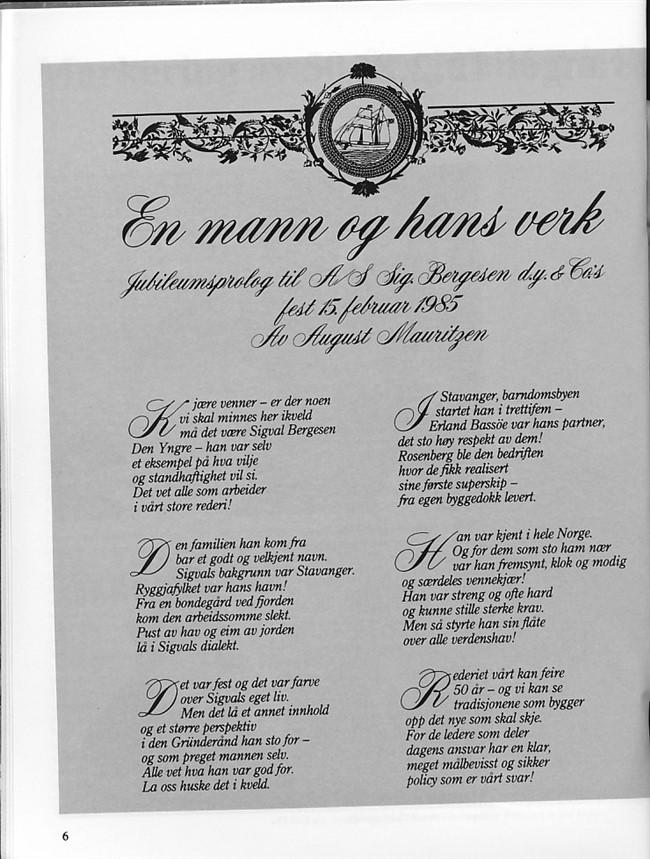 En mann og hans verk
Jubileumsprolog til A/S Sig. Bergesen d.y. & Co.'s
fest 15. februar 1985
Av August Mauritzen
Kjære venner – er der noen
vi skal minnes her ikveld
må det være Sigval Bergesen
Den Yngre – han var selv
et eksempel på hva vilje
og standhaftighet vil si.
Det vet alle som arbeider
i vårt store rederi!
Den familien han kom fra
bar et godt og velkjent navn.
Sigvals bakgrunn var Stavanger.
Ryggjafylket var hans havn!
Fra en bondegård ved fjorden
kom den arbeidssomme slekt.
Pust av hav og eim av jorden
lå i Sigvals dialekt.
Det var fest og det var farve
over Sigvals eget liv.
Men det lå et annet innhold
og et større perspektiv
i den Gründerånd han sto for –
og som preget mannen selv.
Alle vet hva han var god for.
La oss huske det i kveld.
I Stavanger, barndomsbyen
startet han i trettifem –
Erland Bassöe var hans partner,
det sto høy respekt av dem!
Rosenberg ble den bedriften
hvor de fikk realisert
sine første superskip –
fra egen byggedokk levert.
Han var kjent i hele Norge.
Og for dem som sto ham nær
var han fremsynt, klok og modig
og særdeles vennekjær!
Han var streng og ofte hard
og kunne stille sterke krav.
Men så styrte han sin flåte
over alle verdenshav!
Rederiet vårt kan feire
50 år – og vi kan se
tradisjonene som bygger
opp det nye som skal skje.
For de ledere som deler
dagens ansvar har en klar,
meget målbevisst og sikker
policy som er vårt svar!
6